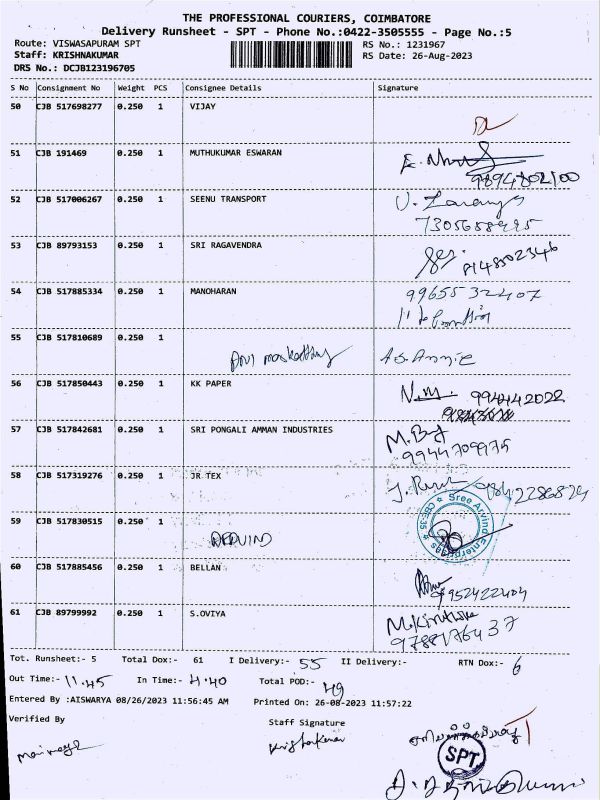 THE PROFESSIONAL COURIERS, COIMBATORE
Delivery Runsheet - SPT - Phone No.:0422-3505555 - Page No.:5
Route: VISWASAPURAM SPT RS No.: 1231967
Staff: KRISHNAKUMAR RS Date: 26-Aug-2023
DRS No.: DCJB123196705
S No Consignment No Weight PCS Consignee Details Signature
50 CJB 517698277 0.250 1 VIJAY
51 CJB 191469 0.250 1 MUTHUKUMAR ESWARAN
9894802100
52 CJB 517006267 0.250 1 SEENU TRANSPORT
53 CJB 89793153 0.250 1 SRI RAGAVENDRA
8148502346
54 CJB 517885334 0.250 1 MANOHARAN 9965532407
55 CJB 517810689 0.250 1
56 CJB 517850443 0.250 1 KK PAPER
57 CJB 517842681 0.250 1 SRI PONGALI AMMAN INDUSTRIES
9944709975
58 CJB 517319276 0.250 1 JR TEX
59 CJB 517830515 0.250 1 Sree Arvind Enterprises CBE-35
60 CJB 517885456 0.250 1 BELLAN
9952422404
61 CJB 89799992 0.250 1 S.OVIYA
9788176437
Tot. Runsheet:- 5 Total Dox:- 61 I Delivery:- 55 II Delivery:- RTN Dox:- 6
Out Time:- 11.45 In Time:- 4.40 Total POD:- 49
Entered By :AISWARYA 08/26/2023 11:56:45 AM Printed On: 26-08-2023 11:57:22
Verified By Staff Signature
SPT